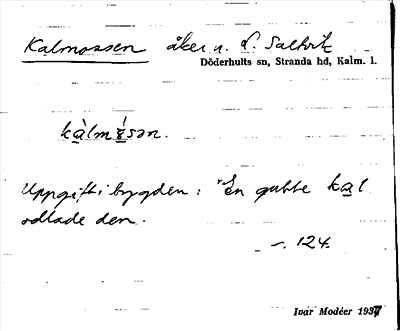 Kalmossen åker u. N. Saltvik
Döderhults sn, Stranda hd, Kalm. l.
kàlmósən.
Uppgift i bygden: "En gubbe kal
odlade den.
—. 124.
Ivar Modéer 1937